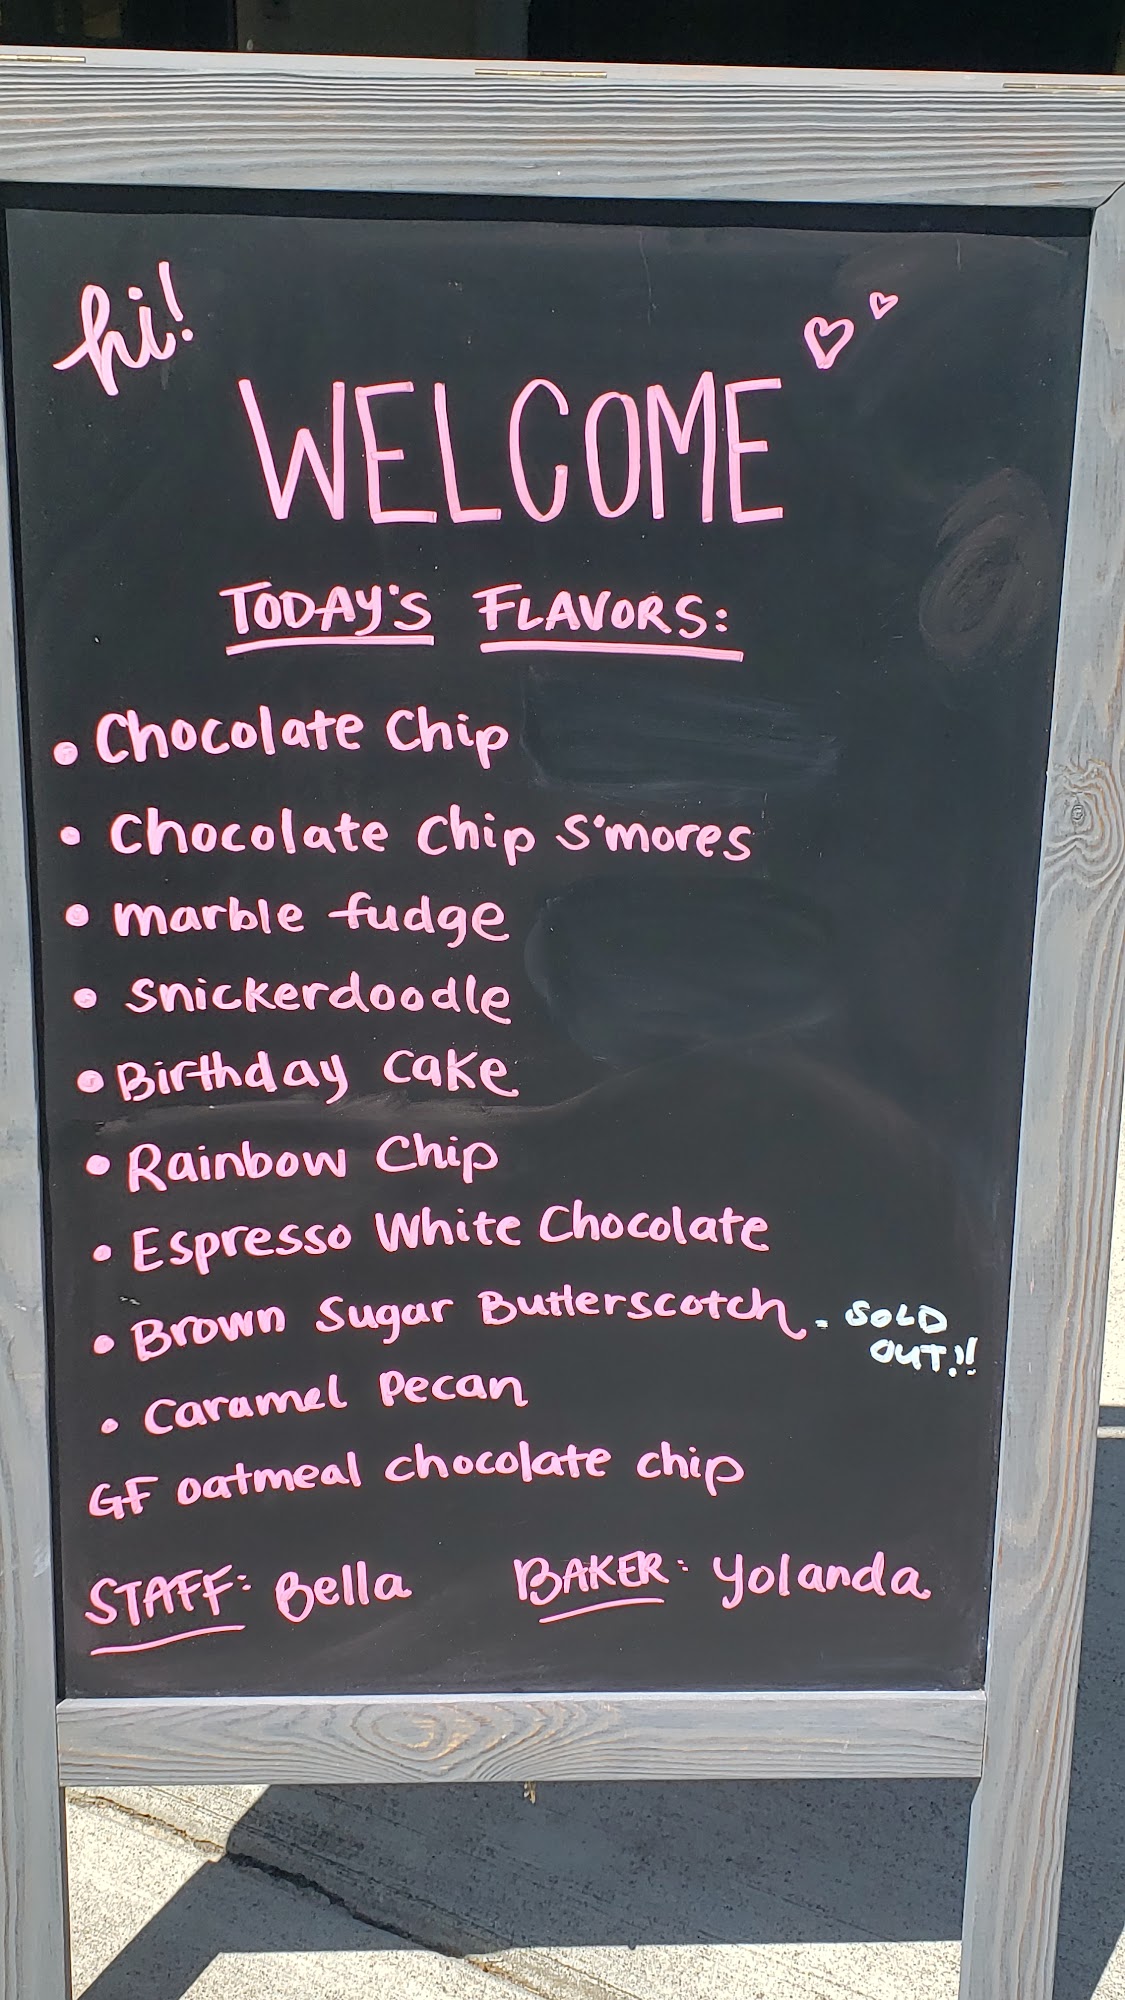 hi!
WELCOME
TODAY'S FLAVORS:
• Chocolate Chip
• Chocolate Chip S'mores
• marble fudge
• Snickerdoodle
• Birthday Cake
• Rainbow Chip
• Espresso White Chocolate
• Brown Sugar Butterscotch - SOLD
OUT!!
• Caramel Pecan
GF oatmeal chocolate chip
STAFF: Bella BAKER: Yolanda